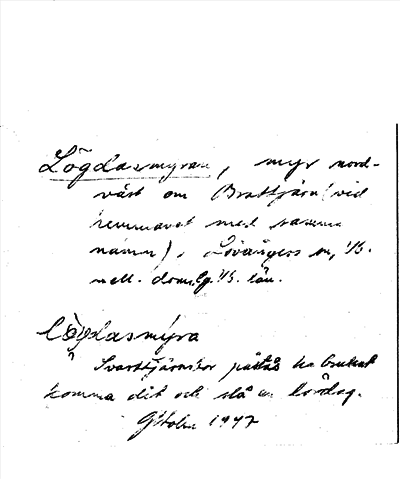 Lögdasmyran, myr nord-
väst om Brattjärn (vid
hemmavat med samma
namn), Lövångers sn, V.B.
mell. doms. V.B. län.
lögdasmýra
Svarttjärnbor påstås ha brukat
komma dit och slå en lördag.
G. Holm 1947